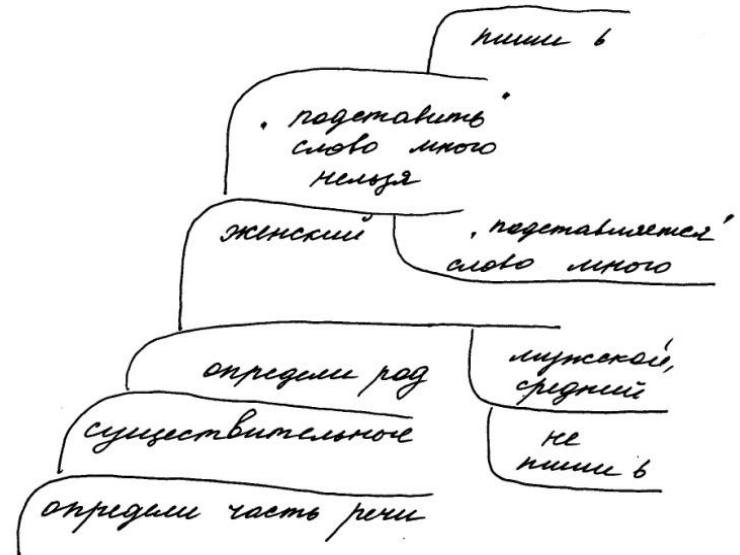 пиши ь
"подставить"
слово много
нельзя
женский
"подставляется"
слово много
определи род
мужской,
средний
существительное
не
пиши ь
определи часть речи